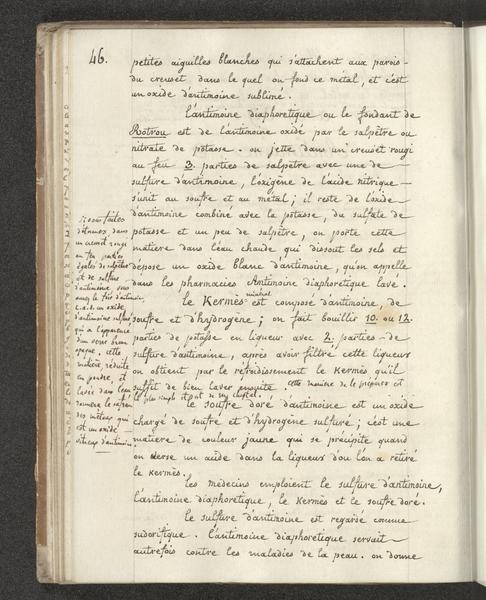 46.
petites aiguilles blanches qui s'attachent aux parois
du creuset dans le quel on fond ce métal, et c'est
un oxide d'antimoine sublimé.
L'antimoine diaphoretique ou le fondant de
Rotrou est de l'antimoine oxidé par le salpêtre ou
nitrate de potasse. on jette dans un creuset rougi
au feu 3. parties de salpêtre avec une de
sulfure d'antimoine, l'oxigène de l'acide nitrique
s'unit au soufre et au métal; il reste de l'oxide
d'antimoine combiné avec la potasse, du sulfate de
potasse et un peu de salpêtre, on porte cette
matiere dans l'eau chaude qui dissout les sels et
depose un oxide blanc d'antimoine, qu'on appelle
dans les pharmacies Antimoine diaphoretique lavé.
le Kermès minéral est composé d'antimoine, de
soufre et d'hydrogène; on fait bouillir 10. ou 12.
parties de potasse en liqueur avec 2. parties de
sulfure d'antimoine, après avoir filtré cette liqueur
on obtient par le refraidissement le Kermès qu'il
suffit de bien laver ensuite. cette maniere de le préparer est
la plus simple et
le soufre doré d'antimoine est un oxide
chargé de soufre et d'hydrogene sulfuré; c'est une
matiere de couleur jaune qui se précipite quand
on verse un acide dans la liqueur d'où l'on a retiré
le Kermès.
les médecins emploient le sulfure d'antimoine,
l'antimoine diaphoretique, le Kermès et le soufre doré.
le sulfure d'antimoine est regardé comme
sudorifique. l'antimoine diaphoretique servait
autrefois contre les maladies de la peau. on donne
Si vous faites
dans
un creuset rougi
au feu parties
égales de salpêtre
et de sulfure
d'antimoine vous
aurez le foie d'antimoine,
c.a.d. un oxide
d'antimoine sulfuré
qui a l'apparence
d'un verre brun
opaque. cette
matière réduite
en poudre, et
lavée dans l'eau
le safran
des métaux qui
est un oxide
d'antimoine.